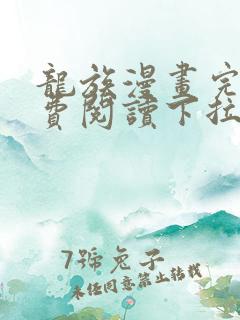 龍族漫畫完
費閱讀下拉
7號兔子
未經同意禁止轉載